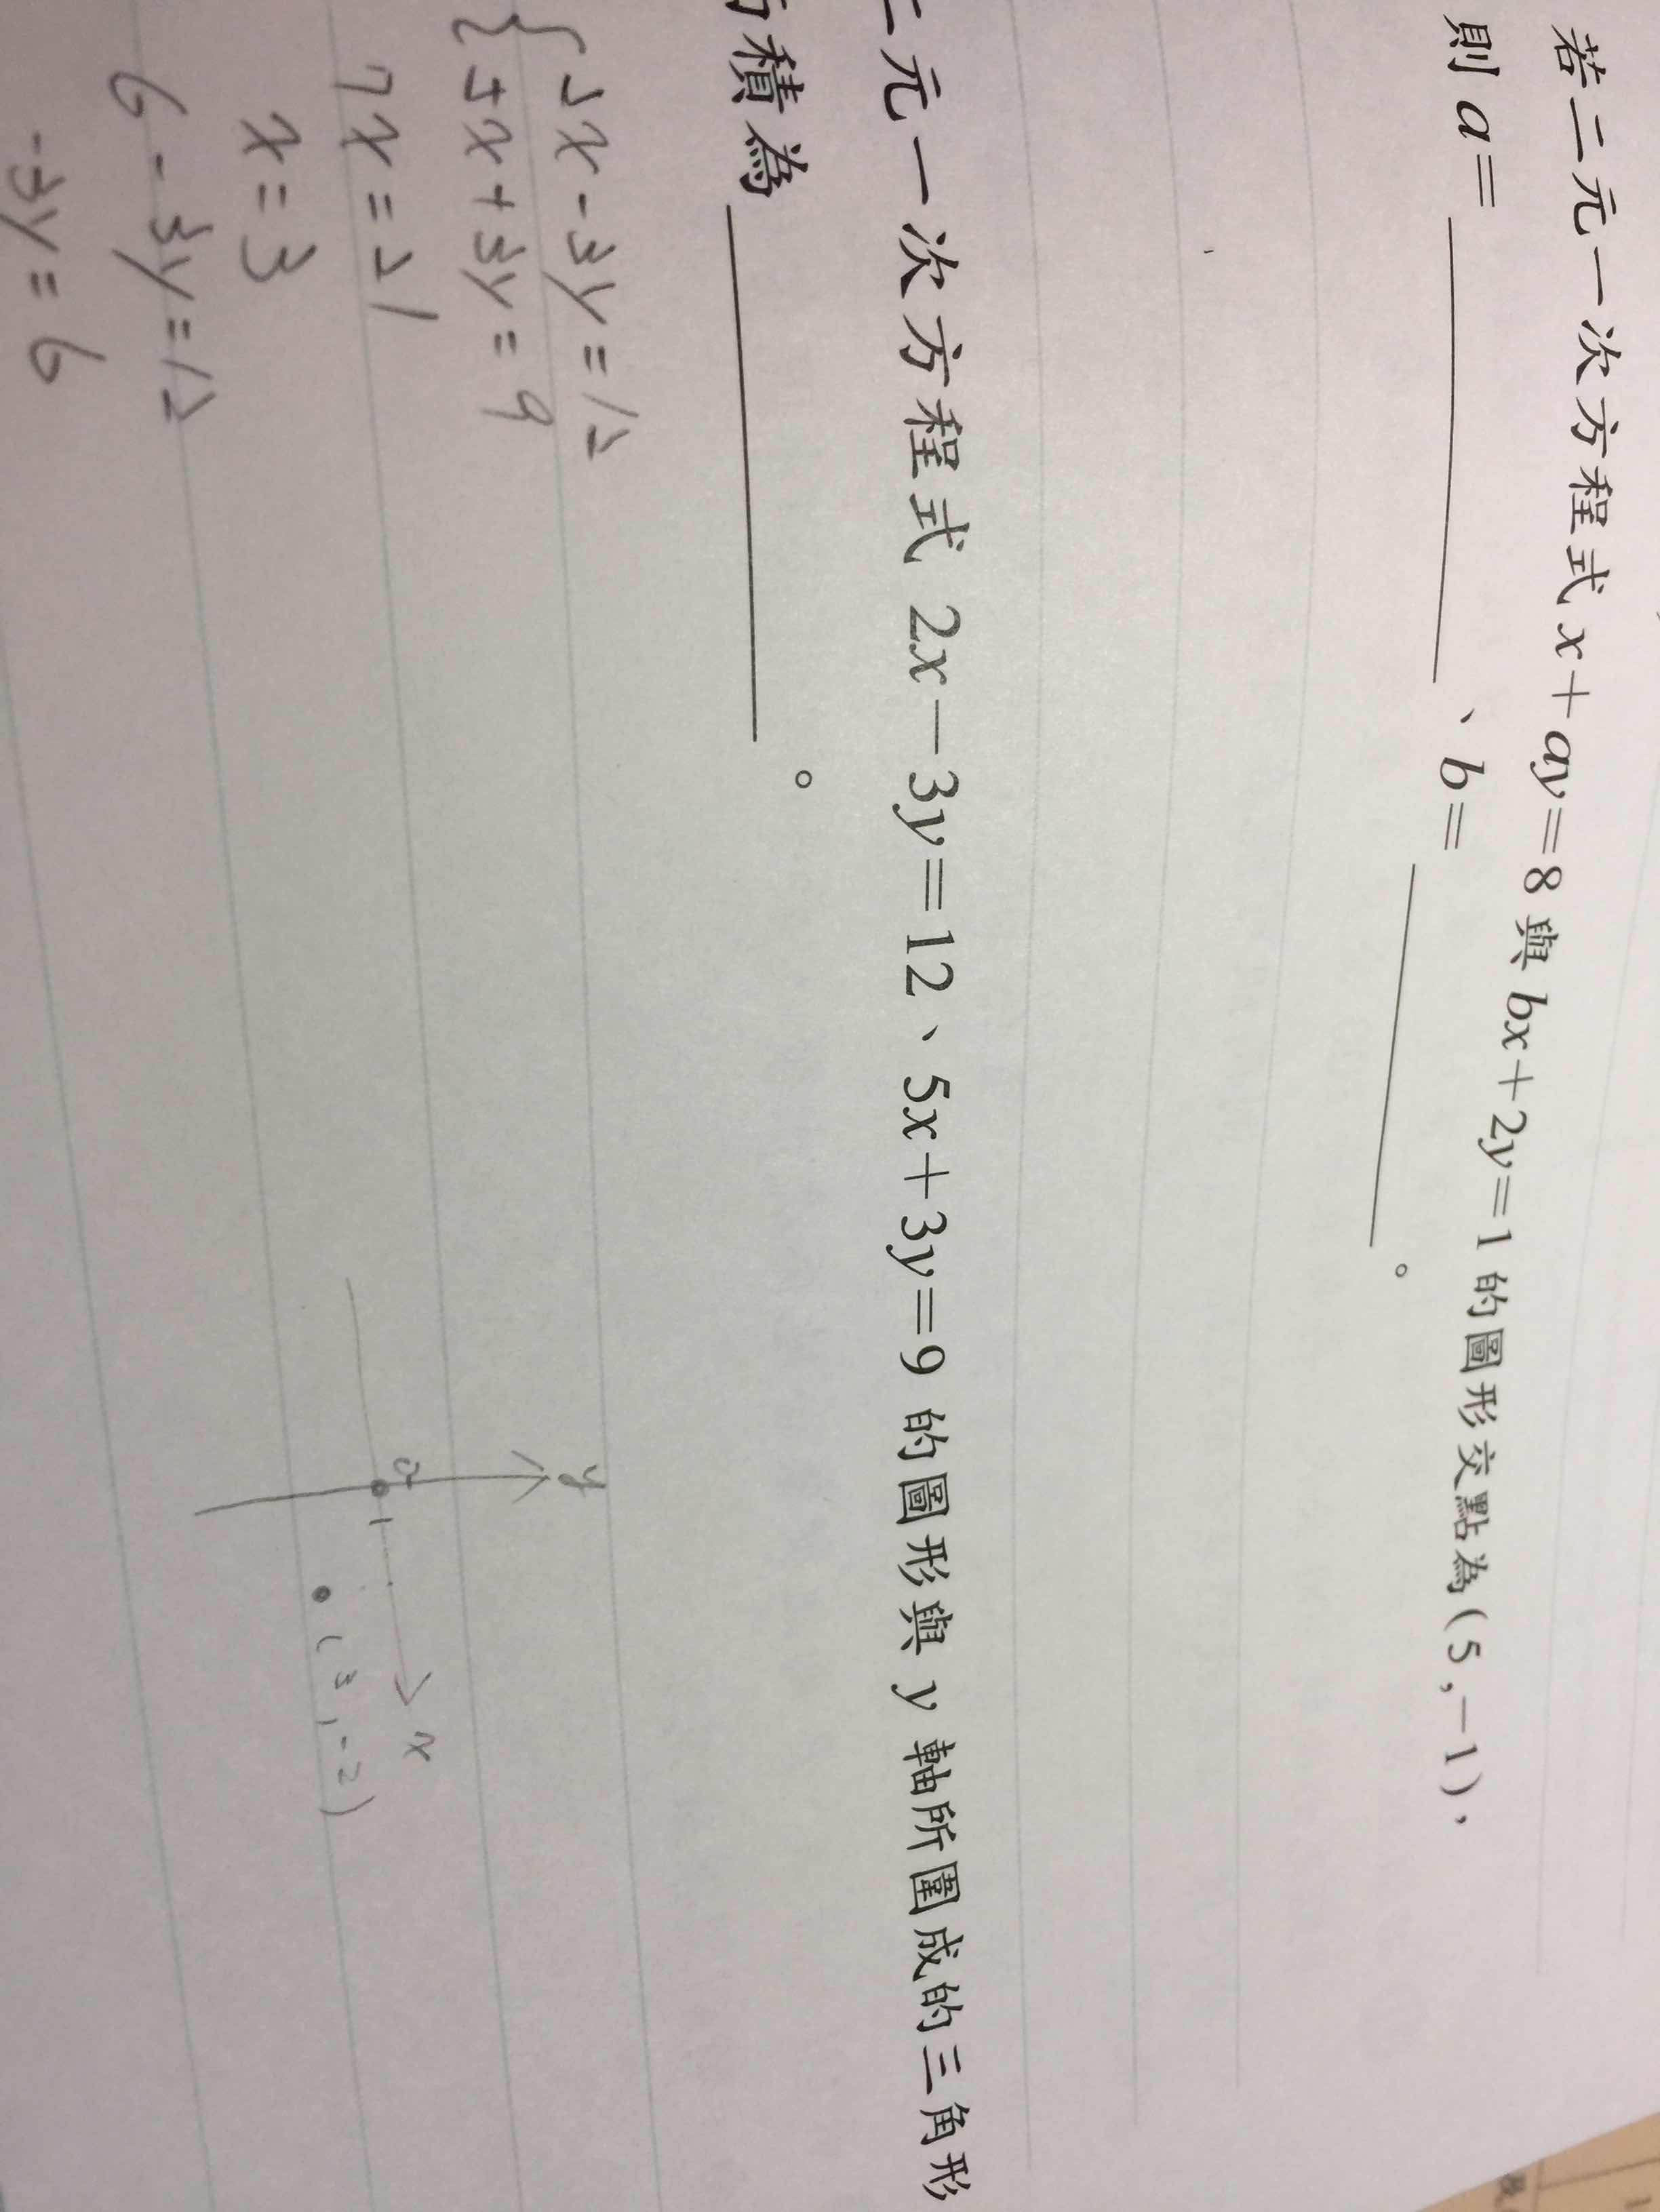 若二元一次方程式 x+ay=8 與 bx+2y=1 的圖形交點為(5,-1),
則 a= 、b= 。
二元一次方程式 2x-3y=12、5x+3y=9 的圖形與 y 軸所圍成的三角形
積為 。
2x-3y=12
5x+3y=9
7x=21
x=3
6-3y=12
-3y=6
y
x
(3,-2)